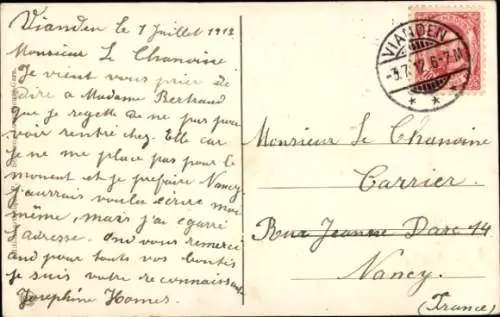 Vianden le 7 Juillet 1912
Monsieur Le Chanoine
Je vient vous prier de
dire a Madame Bertrand
que je regette de ne pas pou
voir rentré chez. Elle car
je ne me place pas pour le
moment et je prefaire Nancy.
J'aurrais voulu écrire moi
même, mais j'ai egarré
l'adresse. And vous remerci
and pour touts vos bontés
je suis votre reconnaissante
Josephine Homes
VIANDEN
-3.7.12.6-7-M
* * *
Monsieur Le Chanoine
Carrier
Rue Jeanne Darc 14
Nancy.
(France)